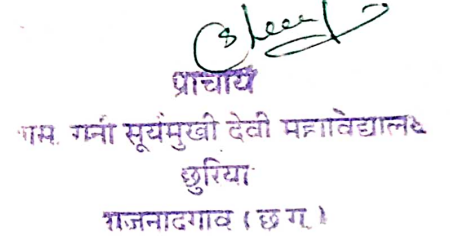 प्राचार्य
शास. रानी सूर्यमुखी देवी महाविद्यालय
छुरिया
राजनादगाव (छ ग.)